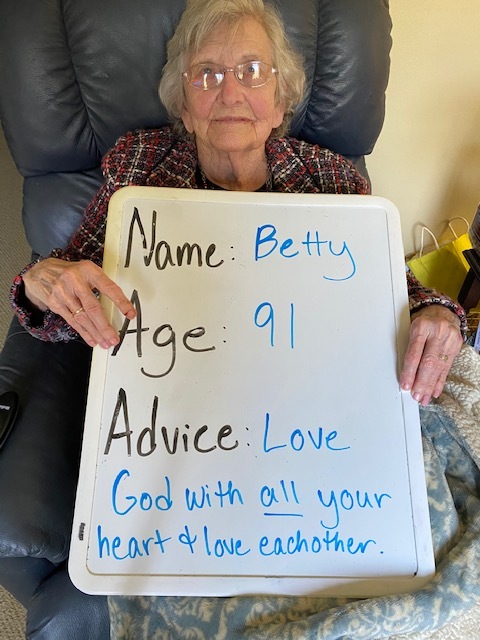 Name: Betty
Age: 91
Advice: Love
God with all your
heart & love eachother.